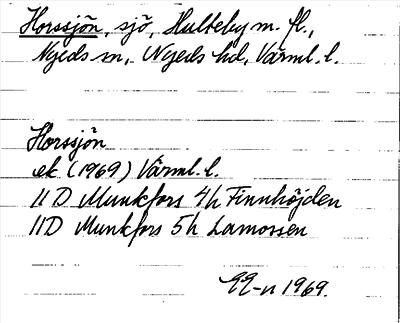 Horssjön, sjö, Hulteby m. fl.,
Nyeds sn, Nyeds hd, Värml. l.
Horssjön
ek (1969) Värml. l.
11D Munkfors 4h Finnhöjden
11D Munkfors 5h Lamossen
1969.